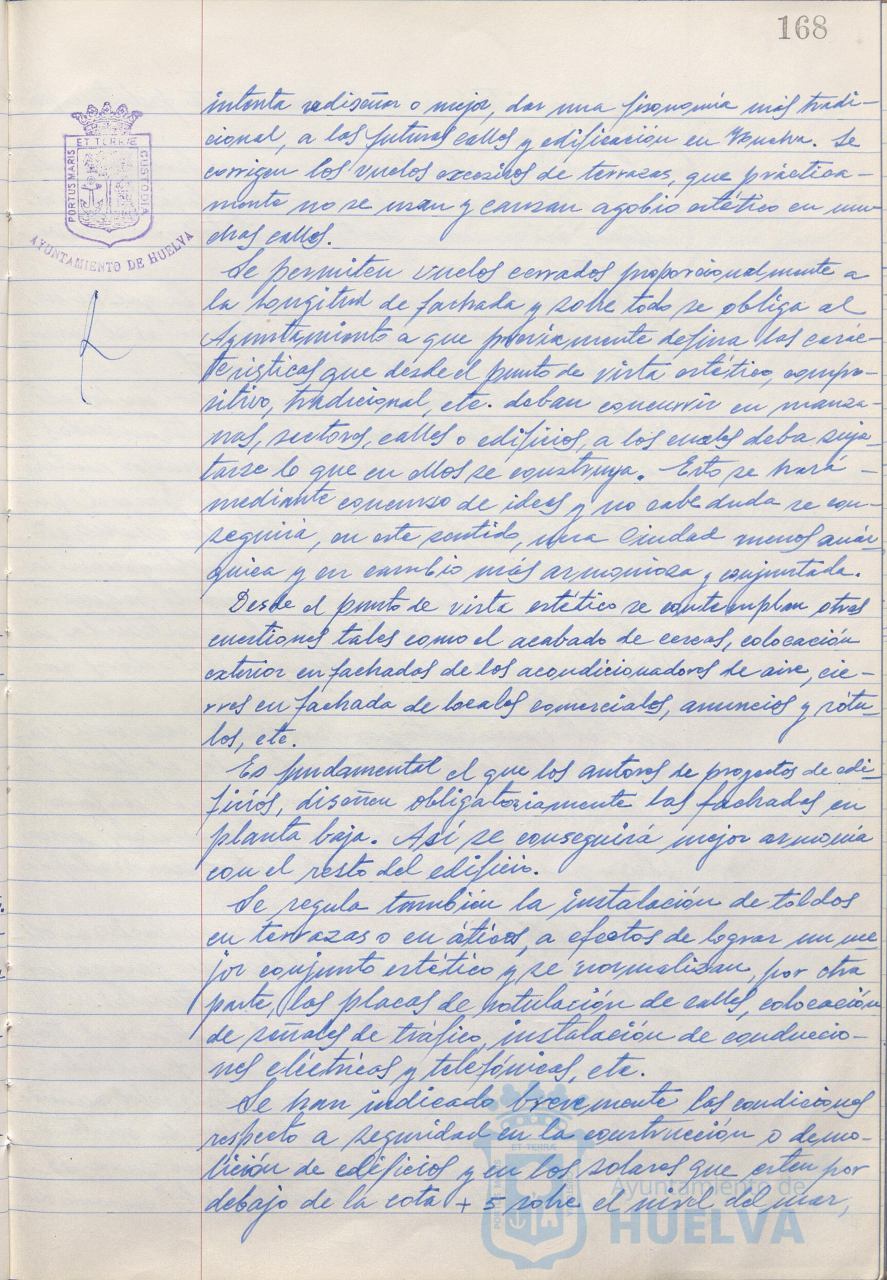 168
ET TERRÆ
PORTUS MARIS
CUSTODIA
AYUNTAMIENTO DE HUELVA
intenta rediseñar o mejor, dar una fisonomía más tradi-
cional, a las futuras calles y edificación en Huelva. Se
corrigen los vuelos excesivos de terrazas, que práctica-
mente no se usan y causan agobio estético en mu-
chas calles.
Se permiten vuelos cerrados proporcionalmente a
la longitud de fachada y sobre todo se obliga al
Ayuntamiento a que previamente defina las carac-
terísticas que desde el punto de vista estético, compo-
sitivo, tradicional, etc. deban concurrir en manza-
nas, sectores, calles o edificios, a los cuales deba suje-
tarse lo que en ellos se construya. Esto se hará -
mediante concurso de ideas y no cabe duda se con-
seguirá, en este sentido, una Ciudad menos anár-
quica y en cambio más armoniosa y conjuntada.
Desde el punto de vista estético se contemplan otras
cuestiones tales como el acabado de cercas, colocación
exterior en fachadas de los acondicionadores de aire, cie-
rres en fachada de locales comerciales, anuncios y rótu-
los, etc.
Es fundamental el que los autores de proyectos de edi-
ficios, diseñen obligatoriamente las fachadas en
planta baja. Así se conseguirá mejor armonía
con el resto del edificio.
Se regula también la instalación de toldos
en terrazas o en áticos, a efectos de lograr un me
jor conjunto estético y se normalizan, por otra
parte, las placas de rotulación de calles, colocación
de señales de tráfico, instalación de conduccio-
nes eléctricas y telefónicas, etc.
Se han indicado brevemente las condiciones
respecto a seguridad en la construcción o demo-
lición de edificios y en los solares que esten por
debajo de la cota + 5 sobre el nivel del mar,
ET TERRA
Ayuntamiento de
HUELVA